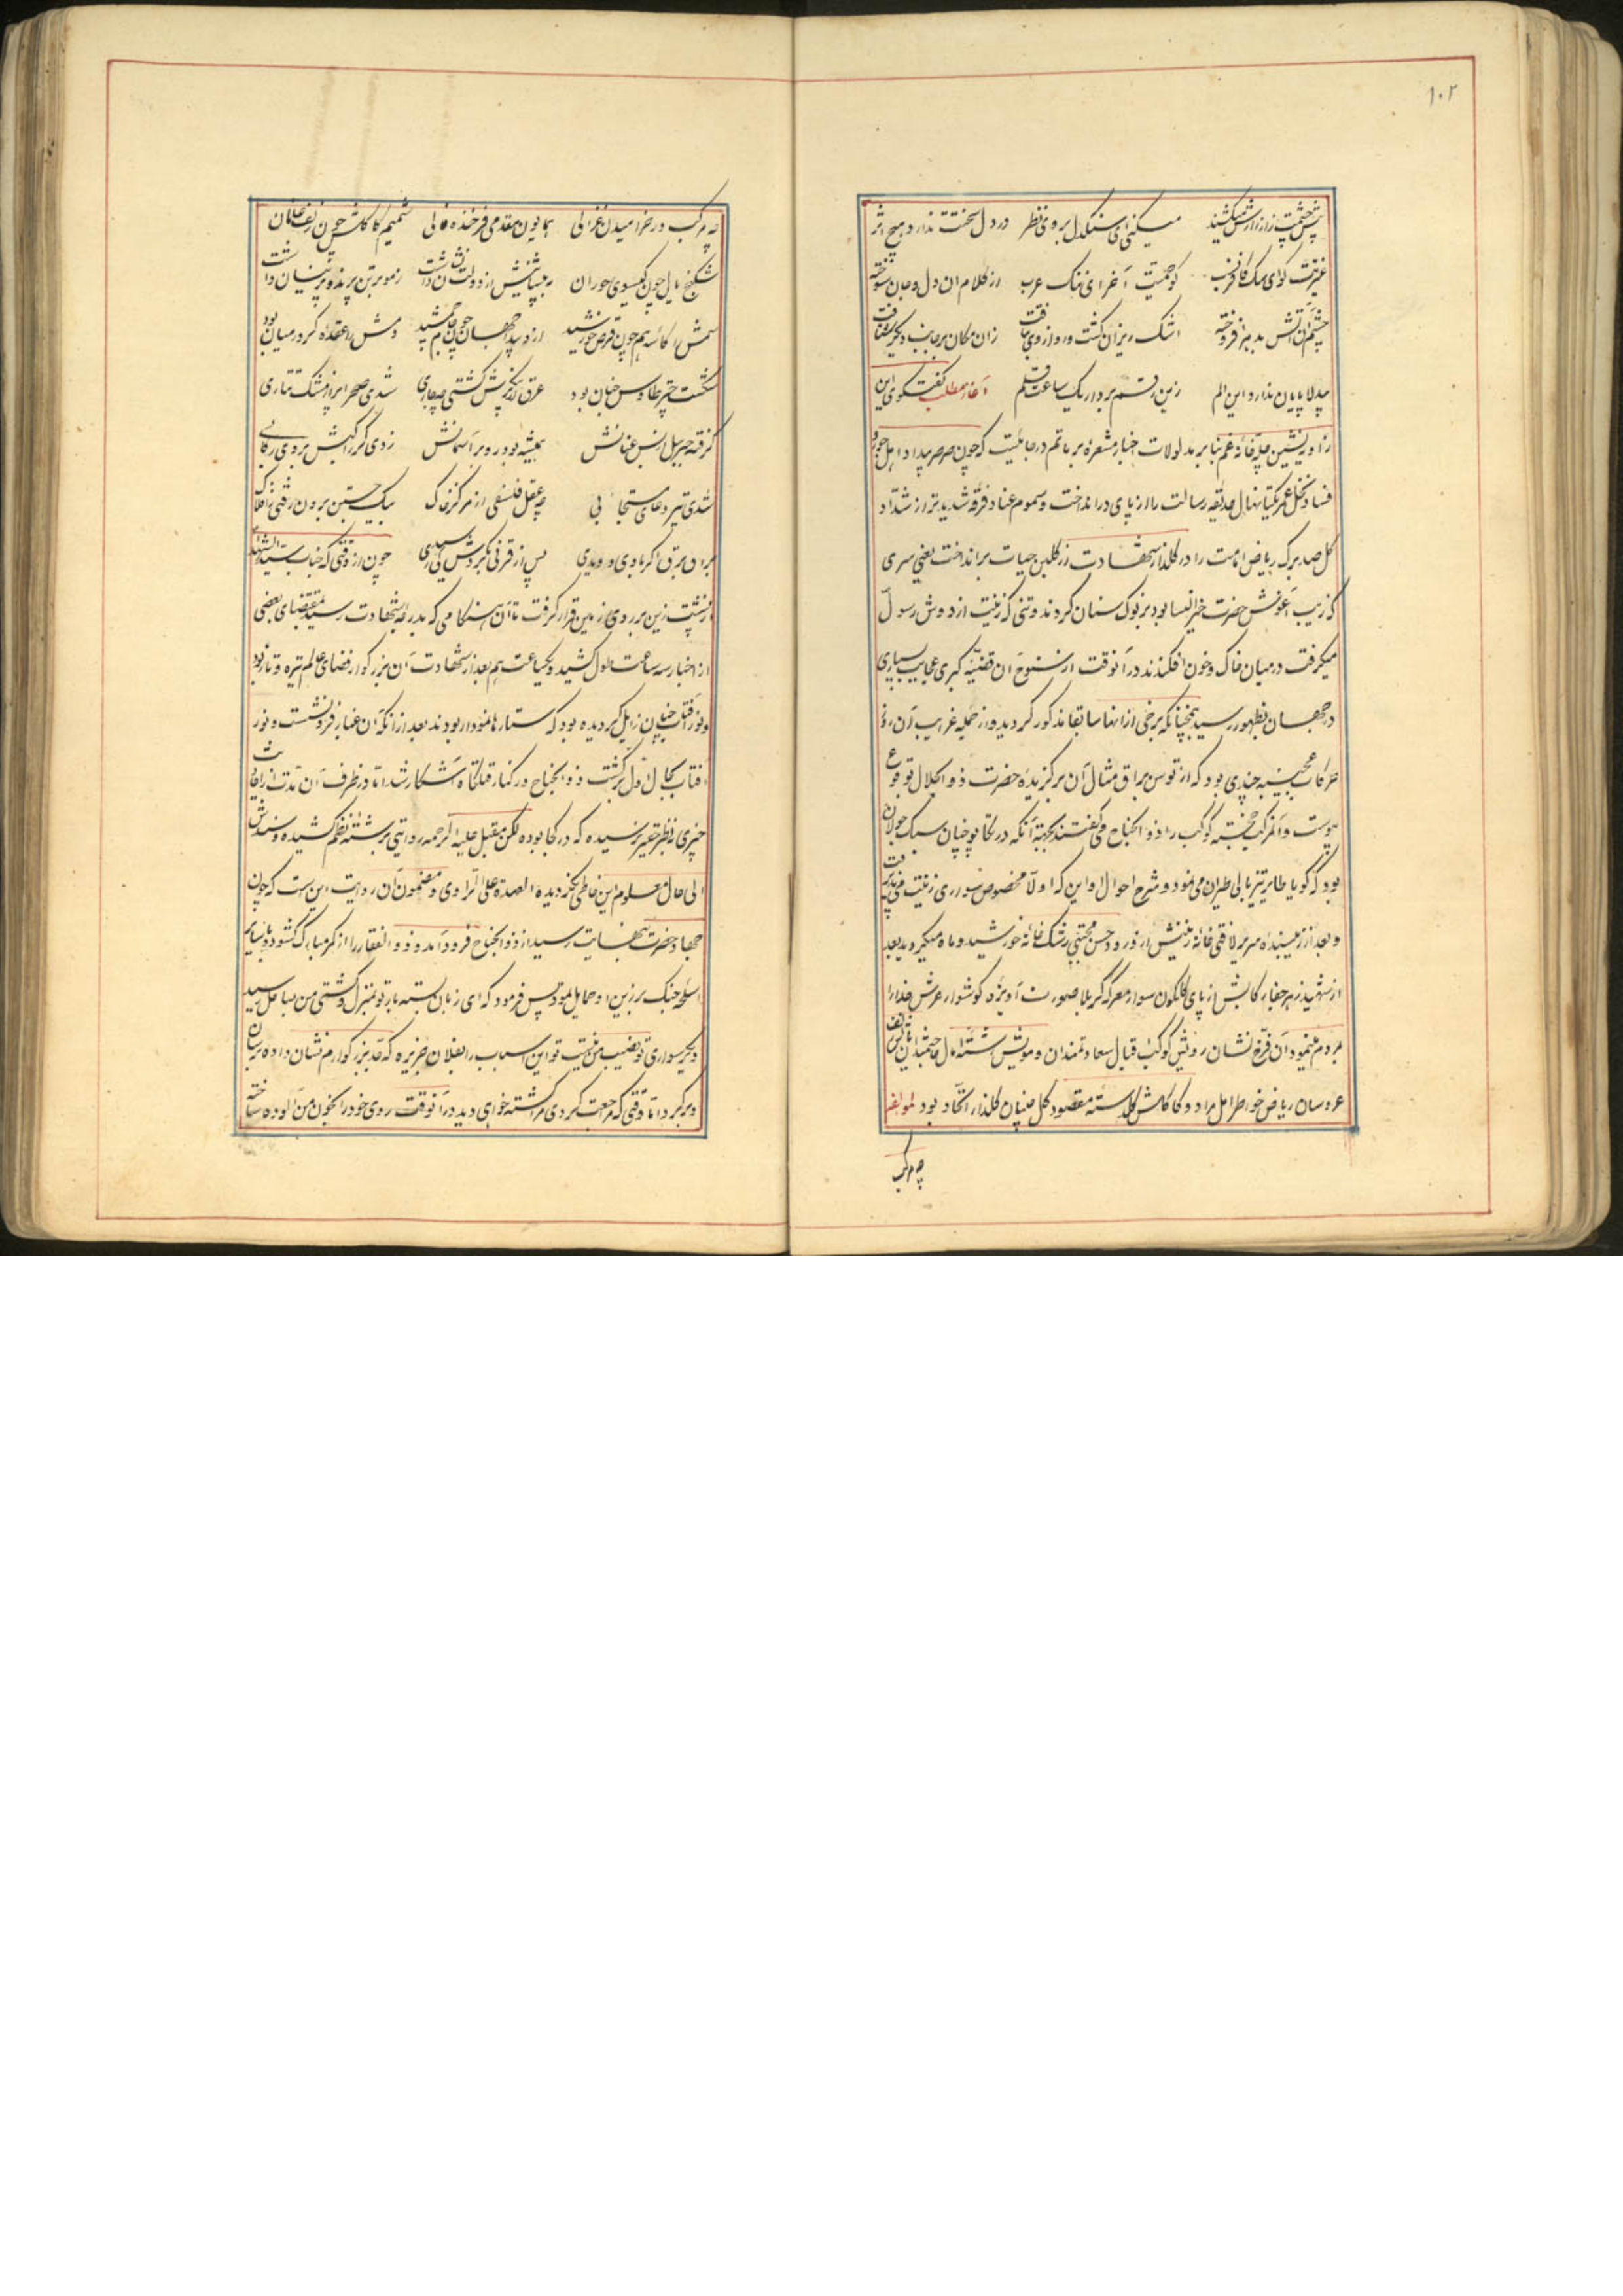 ۱۰۲
پیش چشمت زار زارش میکشند میکنی ای سنگدل بروی نظر در دل سختت ندارد هیچ اثر
غیرتت کو ای سگ کافر کو حمیت آخر ای ننگ عرب از کلام ان دل و جان سوخته
چشم آن آتش بد بر افروخته اشک ریزان گشت و رو از وی بتافت زان مکان بر جانب دیگر شتافت
بیدلا پایان ندارد این الم زین رقم بردار یک ساعت قلم آغاز مطلب گفتگوی این
زاویه نشین چله خانه غم بنا بر مدلولات اخبار مشعره بر ماتم در جائیست که چون صرصر بیداد اهل جور و
فساد نخل عمر یکتا نهال حدیقه رسالت را از پای در انداخت و سموم عناد فرقه شدیدتر از شداد
گل صد برک ریاض امامت را در گلذار شهادت از گلبن حیات برانداخت یعنی سری
که زیب آغوش حضرت خیر النسا بود بر نوک سنان کردند و تنی که زینت از دوش رسول
میگرفت در میان خاک و خون افکندند در آنوقت از سنوح آن قضیه کبری عجایب بسیاری
در جهان بظهور رسید همچنانکه برخی از انها سابقا مذکور گردیده و از جمله غرایب آن روز
حرکات عجیبه چندی بود که از توسن براق مثال آن برگزیده حضرت ذو الجلال بوقوع
پیوست و آنمرکب خجسته کوکب را ذو الجناح می گفتند بجهة آنکه در تکاپو چنان سبک جولان
بود که گویا طایر تیز بالی طیران می نمود و شرح احوال او این که اولا مخصوص سواری زینت می پذیرفت
و بعد از زیبنده سریر لافتی خانه زینش از فر وجود حسن مجتبی رشک خانه خورشید و ماه میگردید بعد
از شهید زهر جفا رکابش از پای گلگون سوار معرکه کربلا بصورت آویزه گوشوار عرش خدا را
بمردم مینمود آن فرخ نشان رویش کوکب اقبال سعادتمندان و مویش رشته آمال حاجتمندان
عروسان ریاض خواطر اهل مراد و کاکلش گلدسته مقصود گل چینان گلذار اتحاد بود لمولفه
چه مرکب
چه مرکب در خرامیدن غزالی همایون مقدمی فرخنده فالی شمیم کاکلش چون زلف غلمان
شکنج یال چون گیسوی حوران به پیشانیش از دولت نشان داشت ز مو برتن پرند و پرنیان داشت
سمش را کاسه هم چون قرص خورشید از و پیدا جهان چون جام جمشید دمش را عقده کر در میان بود
نگشت چتر طاوس جنان بود عرق از پیکرش گشتی چو جاری شدی صحرا پر از مشک تتاری
گرفته جبرئیل از پس عنانش همیشه بود رو بر آسمانش زدی گر راکبش بر وی رکابی
شدی تیر دعای مستجابی چو عقل فلسفی از مرکز خاک بیک جستن برون رفتی ز افلاک
براق برق اگر با وی دویدی پس از قرنی بگردش می رسیدی چون از وقتی که جناب سید الشهدا
از پشت زین بر روی زمین قرار گرفت تا آن هنگامی که بدرجه شهادت رسید بمقتضای بعضی
از اخبار سه ساعت طول کشید و یکساعت هم بعد از شهادت آن بزرگوار فضای عالم تیره و تار بود
و نور آفتاب چنان زایل گردیده بود که ستارها نمودار بودند بعد از انکه آن غبار فرو نشست و نور
آفتاب بحال اول برگشت ذو الجناح در کنار قتلگاه آشکار شد اما در ظرف آن مدت از رقابت
خبری بنظر حقیر نرسیده که در کجا بوده لکن مقبل علیه الرحمه روایتی برشته نظم کشیده و سندش
الی حال معلوم این خاطی نگردیده العهدة علی الراوی و مضمون آن روایت این ست که چون
جهاد حضرت بنهایت رسید از ذو الجناح فرود آمد و ذو الفقار را از کمر مبارک گشود و با سایر
اسلحه جنک بر زین او حمایل نمود پس فرمود که ای زبان بسته بار تو بمنزل و کشتی من بساحل رسید
دیگر سواری تو نصیب من نیست تو این اسباب را بفلان جزیره که جد بزرگوارم نشان داده برسان
و برگرد اما وقتی که مراجعت کردی مرا کشته خواهی دید در آنوقت روی خود را بخون من آلوده ساخته